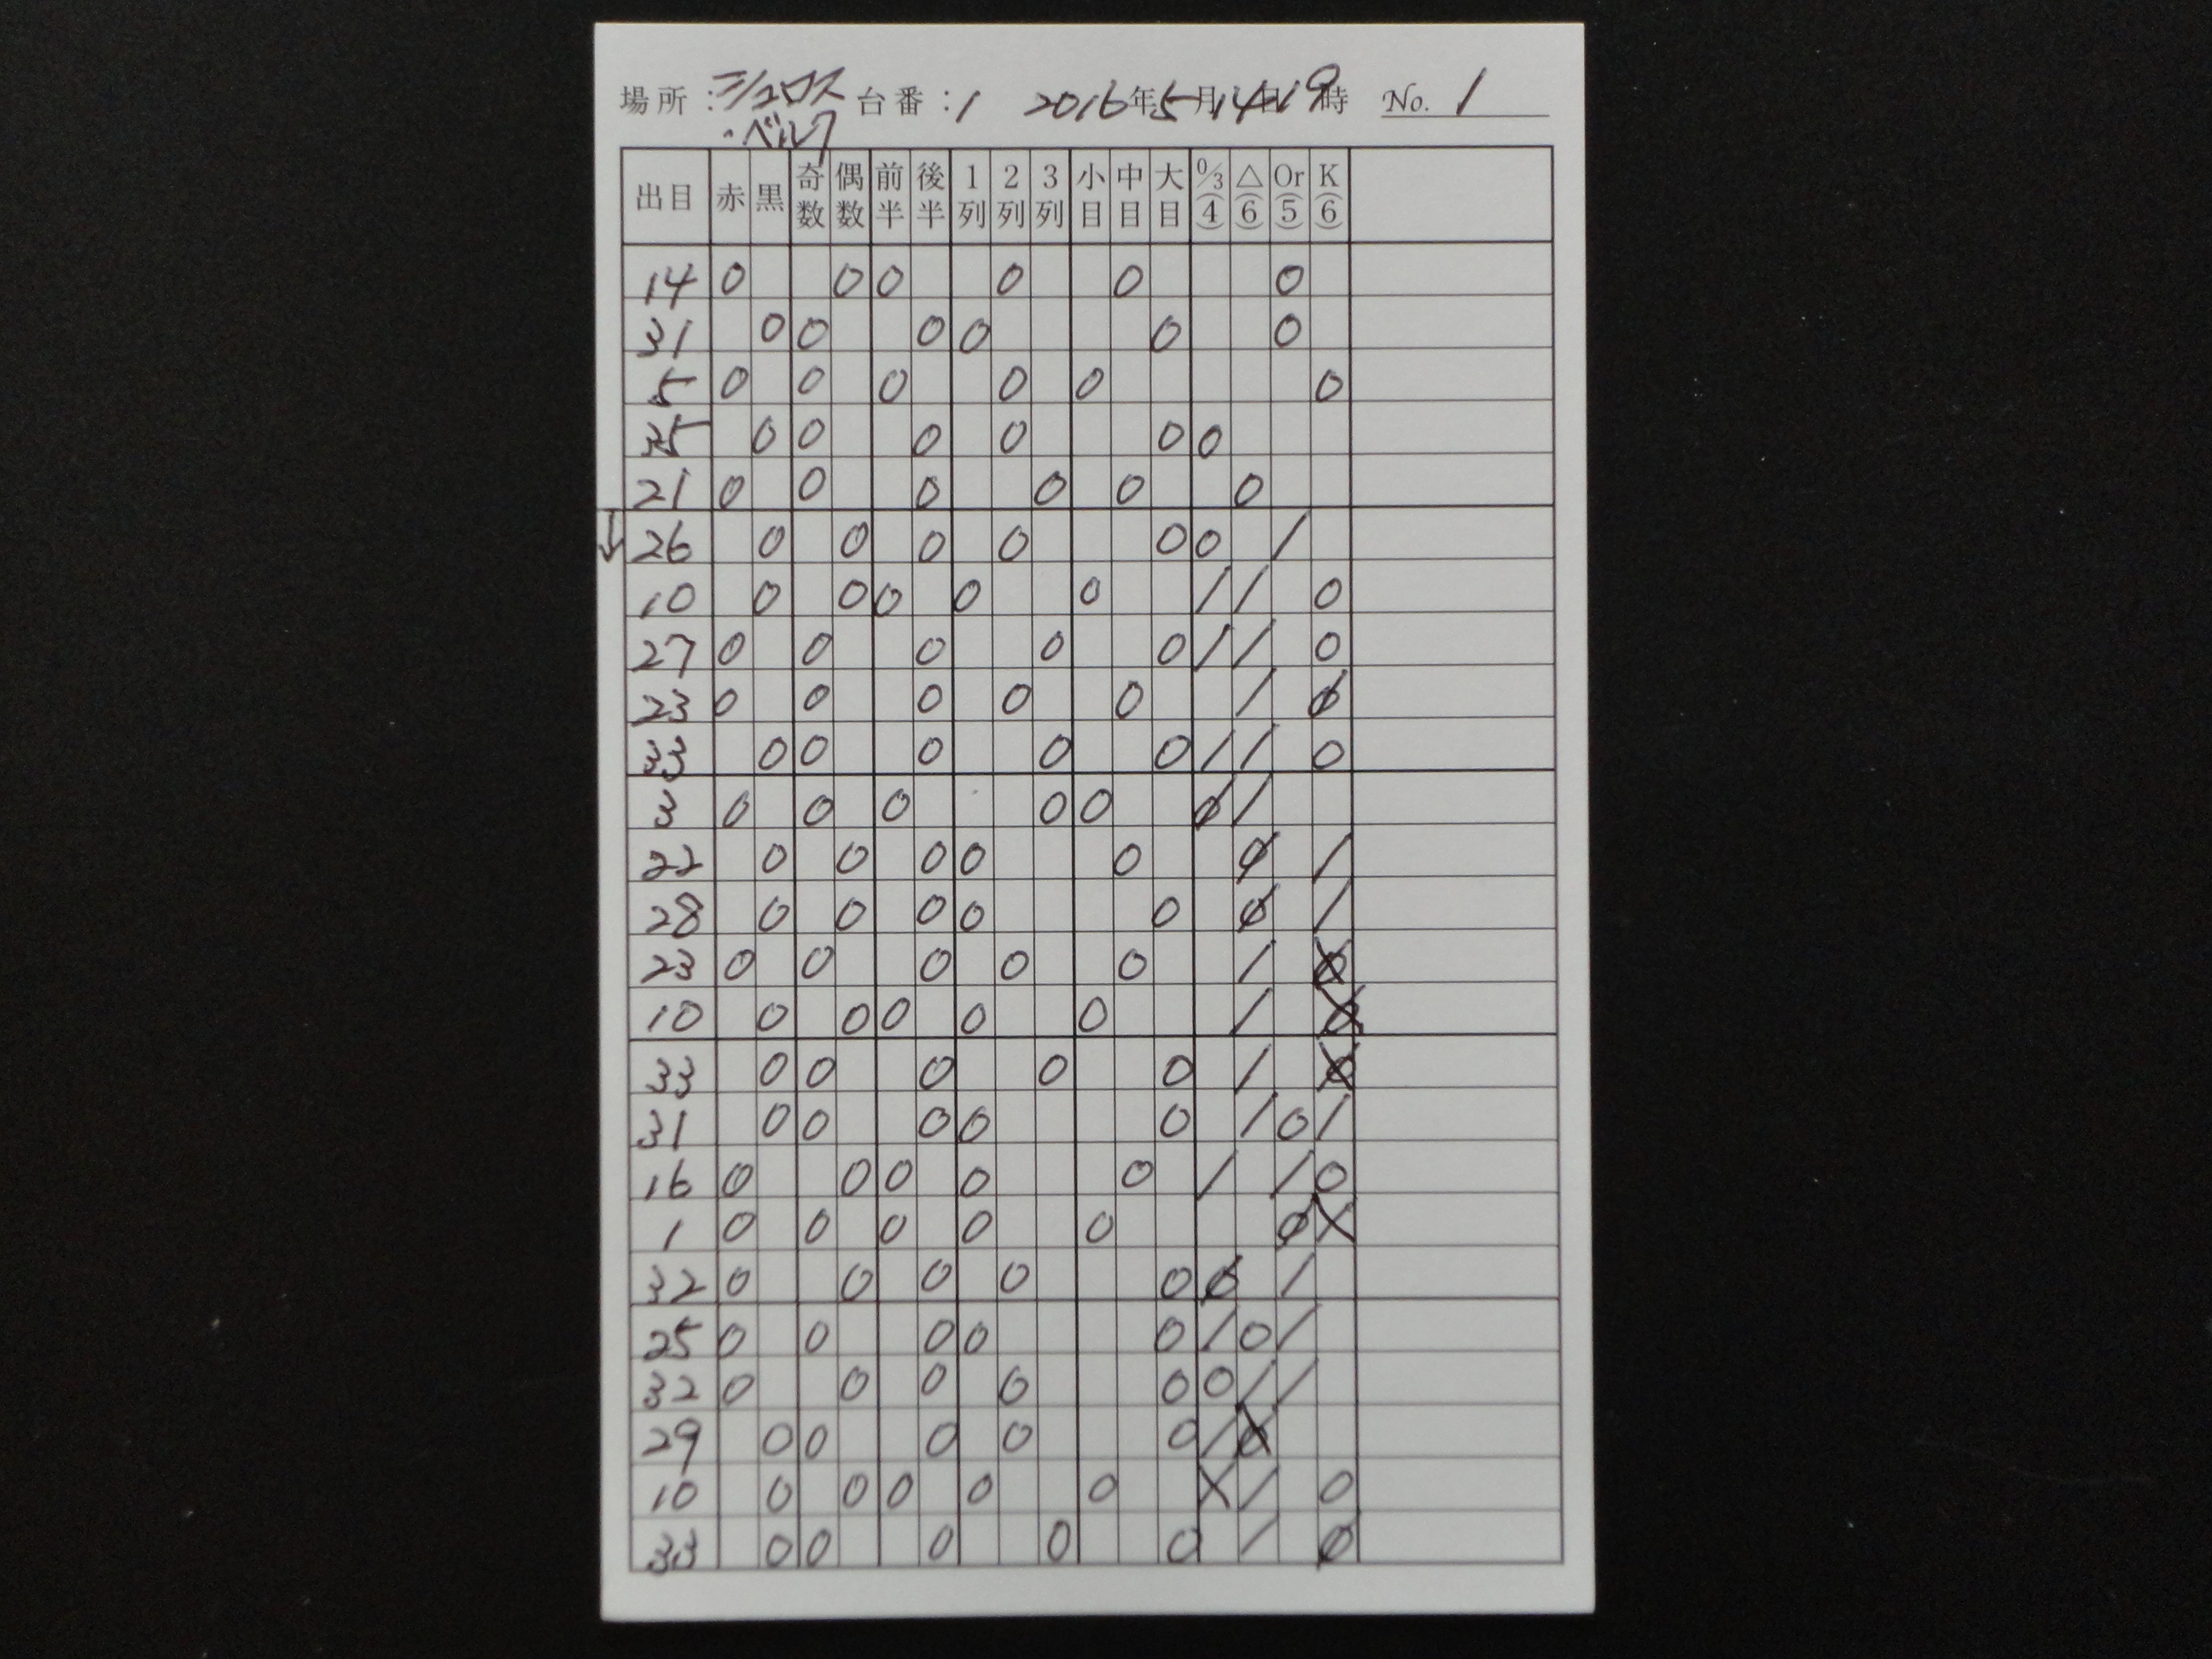 場所：シュロス 台番：1 2016年5月14日19時 No. 1
・ベルク
出目 赤 黒 奇数 偶数 前半 後半 1列 2列 3列 小目 中目 大目 0/3(4) △(6) Or(5) K(6)
14 0 0 0 0 0 0
31 0 0 0 0 0 0
5 0 0 0 0 0 0
35 0 0 0 0 0 0
21 0 0 0 0 0 0
↓ 26 0 0 0 0 0 0 /
10 0 0 0 0 0 / / 0
27 0 0 0 0 0 / / 0
23 0 0 0 0 0 / Ø
33 0 0 0 0 0 / / 0
3 0 0 0 0 0 Ø /
22 0 0 0 0 0 Ø /
28 0 0 0 0 0 Ø /
23 0 0 0 0 0 /
10 0 0 0 0 0 /
33 0 0 0 0 0 /
31 0 0 0 0 0 / 0 /
16 0 0 0 0 0 / / 0
1 0 0 0 0 0 Ø X
32 0 0 0 0 0 Ø /
25 0 0 0 0 0 / 0 /
32 0 0 0 0 0 0 / /
29 0 0 0 0 0 /
10 0 0 0 0 0 X / 0
33 0 0 0 0 0 / Ø